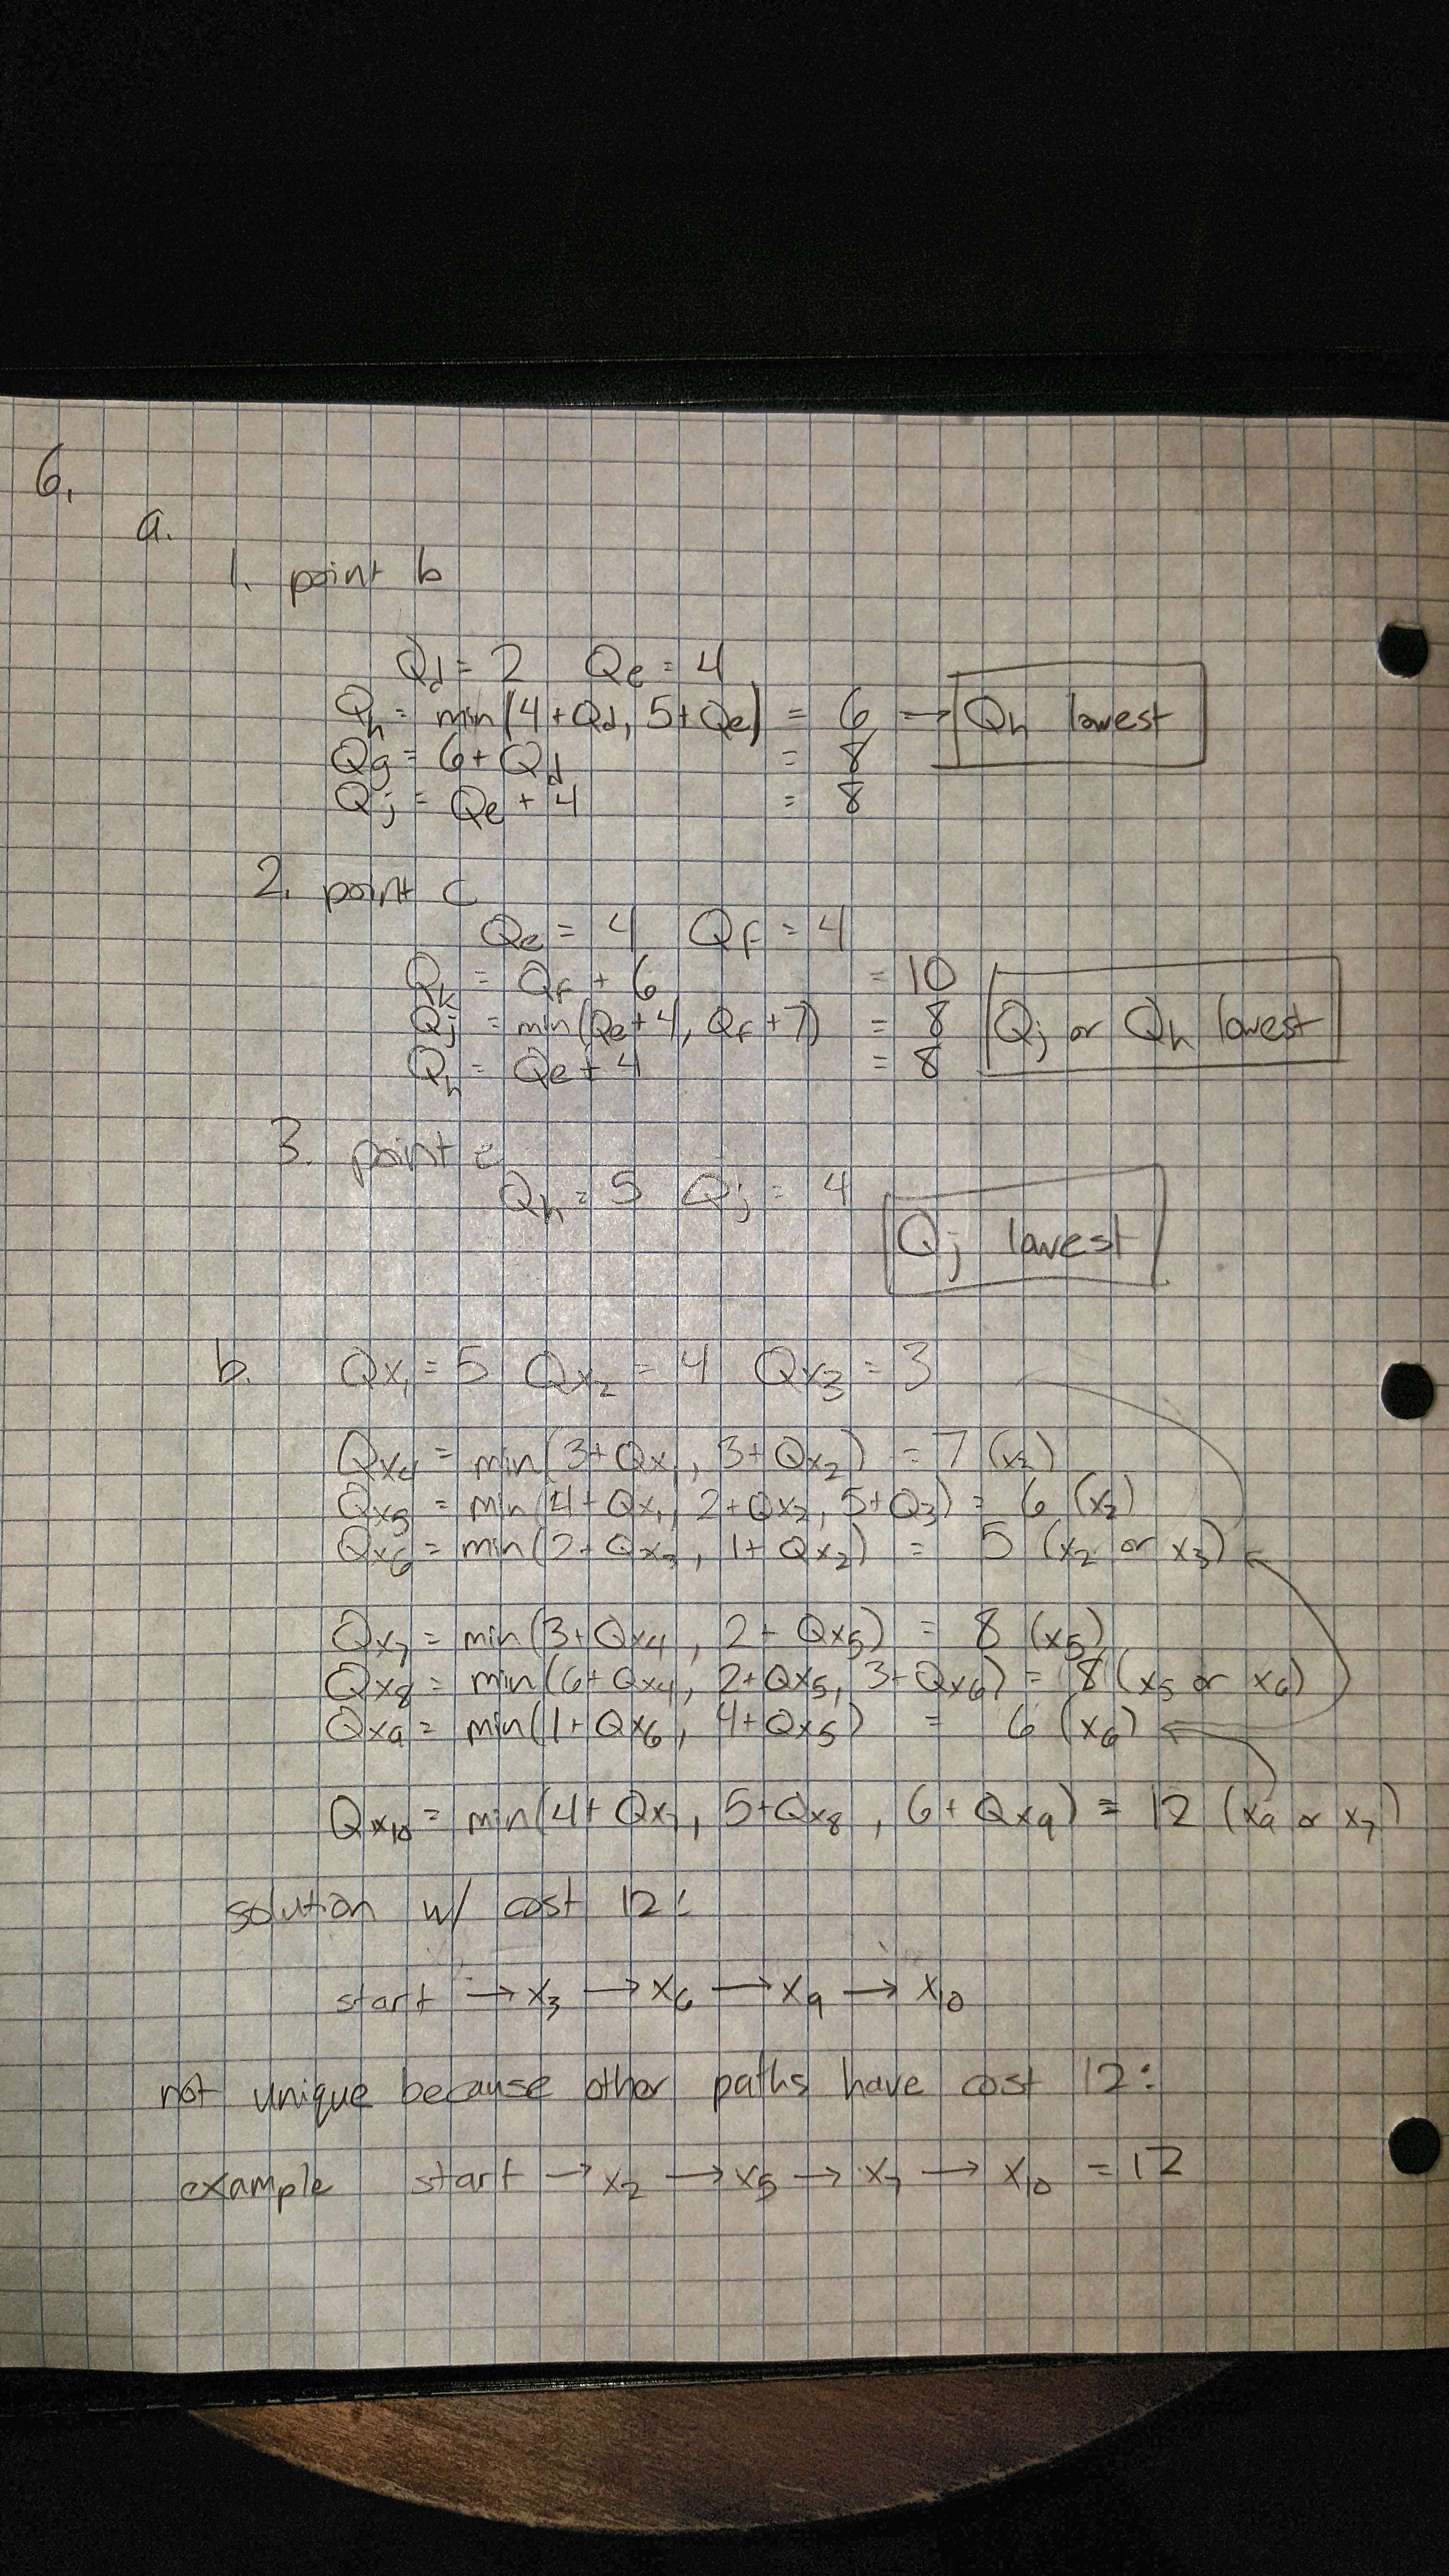 6.
a.
1. point b
Qd = 2 Qe = 4
Qh = min(4+Qd, 5+Qe) = 6 → Qh lowest
Qg = 6+Qd = 8
Qj = Qe + 4 = 8
2. point c
Qe = 4 Qf = 4
Qk = Qf + 6 = 10
Qj = min(Qe+4, Qf+7) = 8 Qj or Qh lowest
Qh = Qe+4 = 8
3. point e
Qh = 5 Qj = 4
Qj lowest
b. Qx1 = 5 Qx2 = 4 Qx3 = 3
Qx4 = min(3+Qx1, 3+Qx2) = 7 (x2)
Qx5 = min(4+Qx1, 2+Qx2, 5+Q3) = 6 (x2)
Qx6 = min(2+Qx3, 1+Qx2) = 5 (x2 or x3)
Qx7 = min(3+Qx4, 2+Qx5) = 8 (x5)
Qx8 = min(6+Qx4, 2+Qx5, 3+Qx6) = 8 (x5 or x6)
Qx9 = min(1+Qx6, 4+Qx5) = 6 (x6)
Qx10 = min(4+Qx7, 5+Qx8, 6+Qx9) = 12 (x9 or x7)
solution w/ cost 12:
start → x3 → x6 → x9 → x10
not unique because other paths have cost 12:
example start → x2 → x5 → x7 → x10 = 12